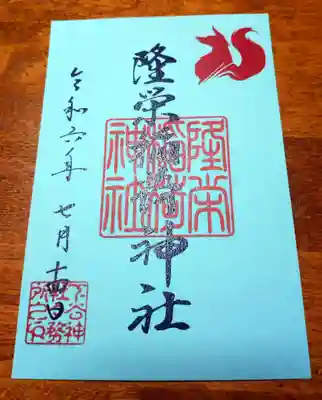 隆栄稲荷神社
隆栄
稲荷
神社
令和六年 七月 十四日
下谷神
社務
所之印